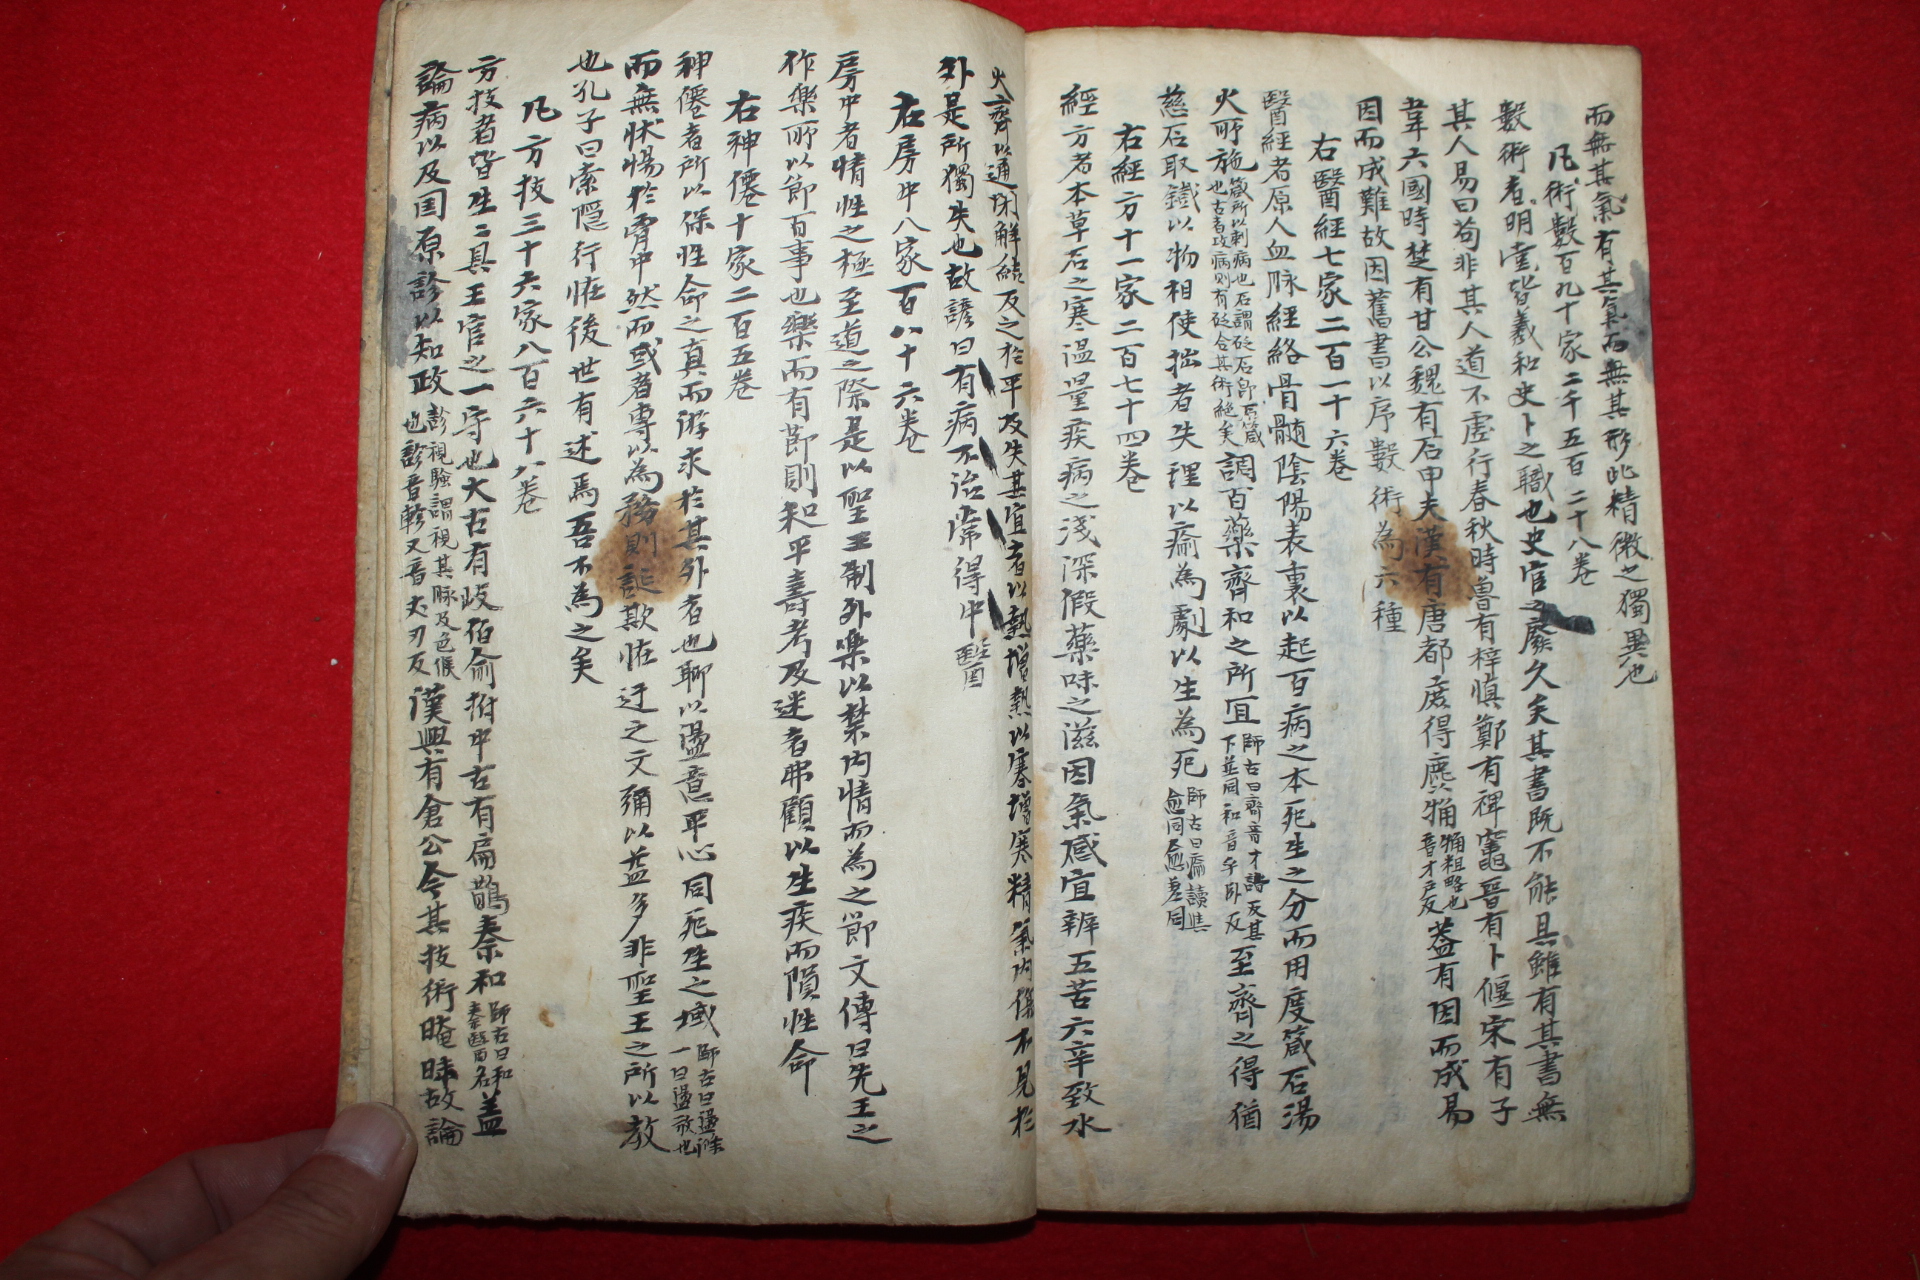 而無其氣有其氣而無其形此精微之獨異也
凡術數百九十家二千五百二十八卷
數術者明堂皆羲和史卜之職也史官之廢久矣其書既不能具雖有其書無
其人易曰苟非其人道不虛行春秋時魯有梓慎鄭有裨竈晉有卜偃宋有子
韋六國時楚有甘公魏有石申夫漢有唐都庶得麤觕觕粗略也音才戶反蓋有因而成易
因而成難故因舊書以序數術為六種
右醫經七家二百一十六卷
醫經者原人血脉經絡骨髓陰陽表裏以起百病之本死生之分而用度箴石湯
火所施箴所以刺病也石謂砭石即石箴也古者攻病則有砭今其術絕矣調百藥齊和之所宜師古曰齊音才詣反其下並同和音乎卧反至齊之得猶
慈石取鐵以物相使拙者失理以瘉為劇以生為死師古曰瘉讀與愈同愈差同
右經方十一家二百七十四卷
經方者本草石之寒温量疾病之淺深假藥味之滋因氣感宜辨五苦六辛致水
火齊以通閉解結反之於平及失其宜者以熱增熱以寒增寒精氣內傷不見於
外是所獨失也故諺曰有病不治常得中醫
右房中八家百八十六卷
房中者情性之極至道之際是以聖王制外樂以禁內情而為之節文傳曰先王之
作樂所以節百事也樂而有節則和平壽考及迷者弗顧以生疾而隕性命
右神僊十家二百五卷
神僊者所以保性命之真而游求於其外者也聊以盪意平心同死生之域師古曰盪滌一曰盪放也
而無怵惕於胷中然而或者專以為務則誕欺恠迂之文彌以益多非聖王之所以教
也孔子曰索隱行恠後世有述焉吾不為之矣
凡方技三十六家八百六十八卷
方技者皆生生具王官之一守也太古有歧伯俞拊中古有扁鵲秦和師古曰和秦醫名蓋
論病以及国原診以知政診視驗謂視其脉及色候也診音軫又音丈刃反漢興有倉公今其技術晻昧故論